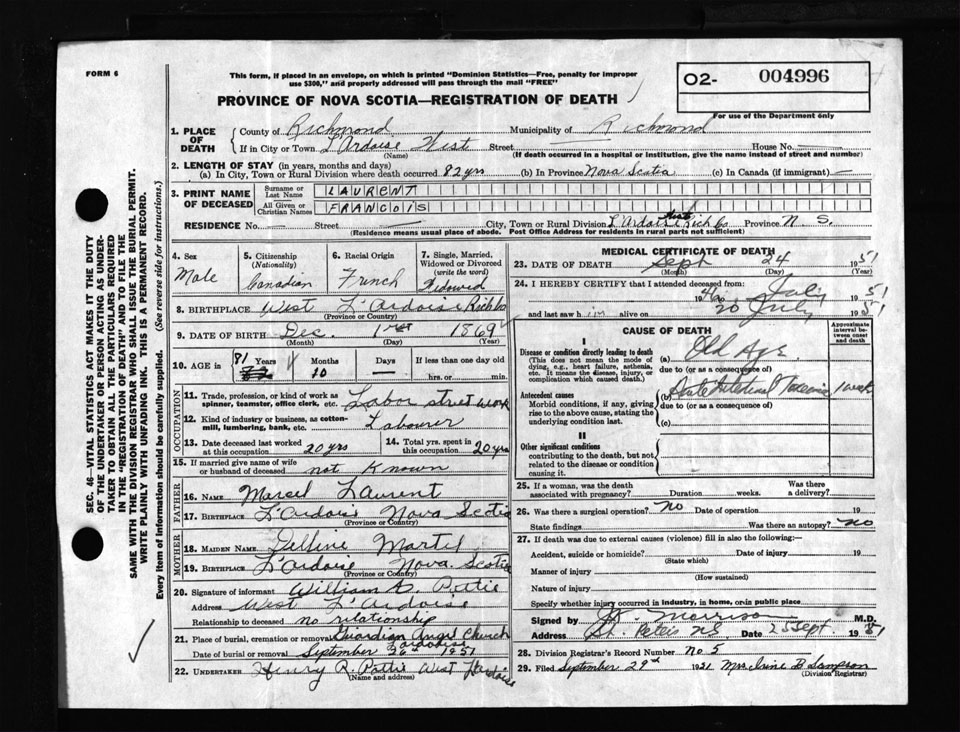 FORM 6
This form, if placed in an envelope, on which is printed "Dominion Statistics—Free, penalty for improper
use $300," and properly addressed will pass through the mail "FREE"
PROVINCE OF NOVA SCOTIA—REGISTRATION OF DEATH
O2- 004996
For use of the Department only
1. PLACE OF DEATH
County of Richmond Municipality of Richmond
If in City or Town L'Ardoise West Street House No.
(Name) (If death occurred in a hospital or institution, give the name instead of street and number)
2. LENGTH OF STAY (in years, months and days)
(a) In City, Town or Rural Division where death occurred 82 yrs (b) In Province Nova Scotia (c) In Canada (if immigrant) —
3. PRINT NAME OF DECEASED
Surname or Last Name LAURENT
All Given or Christian Names FRANCOIS
RESIDENCE No. — Street — City, Town or Rural Division L'Ardoise West Rich Co Province N. S.
(Residence means usual place of abode. Post Office Address for residents in rural parts not sufficient)
4. Sex Male
5. Citizenship (Nationality) Canadian
6. Racial Origin French
7. Single, Married, Widowed or Divorced (write the word) Widowed
8. BIRTHPLACE West L'Ardoise Rich Co
(Province or Country)
9. DATE OF BIRTH Dec. 1st 1869
(Month) (Day) (Year)
10. AGE in 81 Years 10 Months — Days If less than one day old
hrs. or min.
OCCUPATION
11. Trade, profession, or kind of work as spinner, teamster, office clerk, etc. Labor street work
12. Kind of industry or business, as cotton-mill, lumbering, bank, etc. Labourer
13. Date deceased last worked at this occupation 20 yrs
14. Total yrs. spent in this occupation 20 yrs
15. If married give name of wife or husband of deceased not Known
FATHER
16. NAME Marcel Laurent
17. BIRTHPLACE L'Ardoise Nova Scotia
(Province or Country)
MOTHER
18. MAIDEN NAME Delline Martel
19. BIRTHPLACE L'Ardoise Nova Scotia
(Province or Country)
20. Signature of informant William Pottie
Address West L'Ardoise
Relationship to deceased no relationship
21. Place of burial, cremation or removal Guardian Angel Church
L'Ardoise
Date of burial or removal September 26th 1951
22. UNDERTAKER Henry R. Pottie West L'Ardoise
(Name and address)
MEDICAL CERTIFICATE OF DEATH
23. DATE OF DEATH Sept 24 1951
(Month) (Day) (Year)
24. I HEREBY CERTIFY that I attended deceased from:
46 to July 1951
and last saw him alive on 20 July 1951
CAUSE OF DEATH
Approximate interval between onset and death
I
Disease or condition directly leading to death (a) Old Age
(This does not mean the mode of dying, e.g., heart failure, asthenia, etc. It means the disease, injury, or complication which caused death.)
due to (or as a consequence of)
Antecedent causes (b) 1 week
Morbid conditions, if any, giving rise to the above cause, stating the underlying condition last.
due to (or as a consequence of)
(c)
II
Other significant conditions
contributing to the death, but not related to the disease or condition causing it.
25. If a woman, was the death associated with pregnancy? Duration weeks. Was there a delivery?
26. Was there a surgical operation? No Date of operation 19
State findings Was there an autopsy? No
27. If death was due to external causes (violence) fill in also the following:—
Accident, suicide or homicide? Date of injury 19
(State which)
Manner of injury
(How sustained)
Nature of injury
Specify whether injury occurred in industry, in home, or in public place
Signed by Morrison M.D.
Address St. Peters NS Date 25 Sept. 1951
28. Division Registrar's Record Number No 5
29. Filed September 29th 1951 Mrs Irene B Sampson
(Division Registrar)
SEC. 46—VITAL STATISTICS ACT MAKES IT THE DUTY
OF THE UNDERTAKER OR PERSON ACTING AS UNDER-
TAKER TO OBTAIN ALL THE PARTICULARS REQUIRED
IN THE "REGISTRATION OF DEATH" AND TO FILE THE
SAME WITH THE DIVISION REGISTRAR WHO SHALL ISSUE THE BURIAL PERMIT.
WRITE PLAINLY WITH UNFADING INK. THIS IS A PERMANENT RECORD.
Every item of information should be carefully supplied. (See reverse side for instructions.)